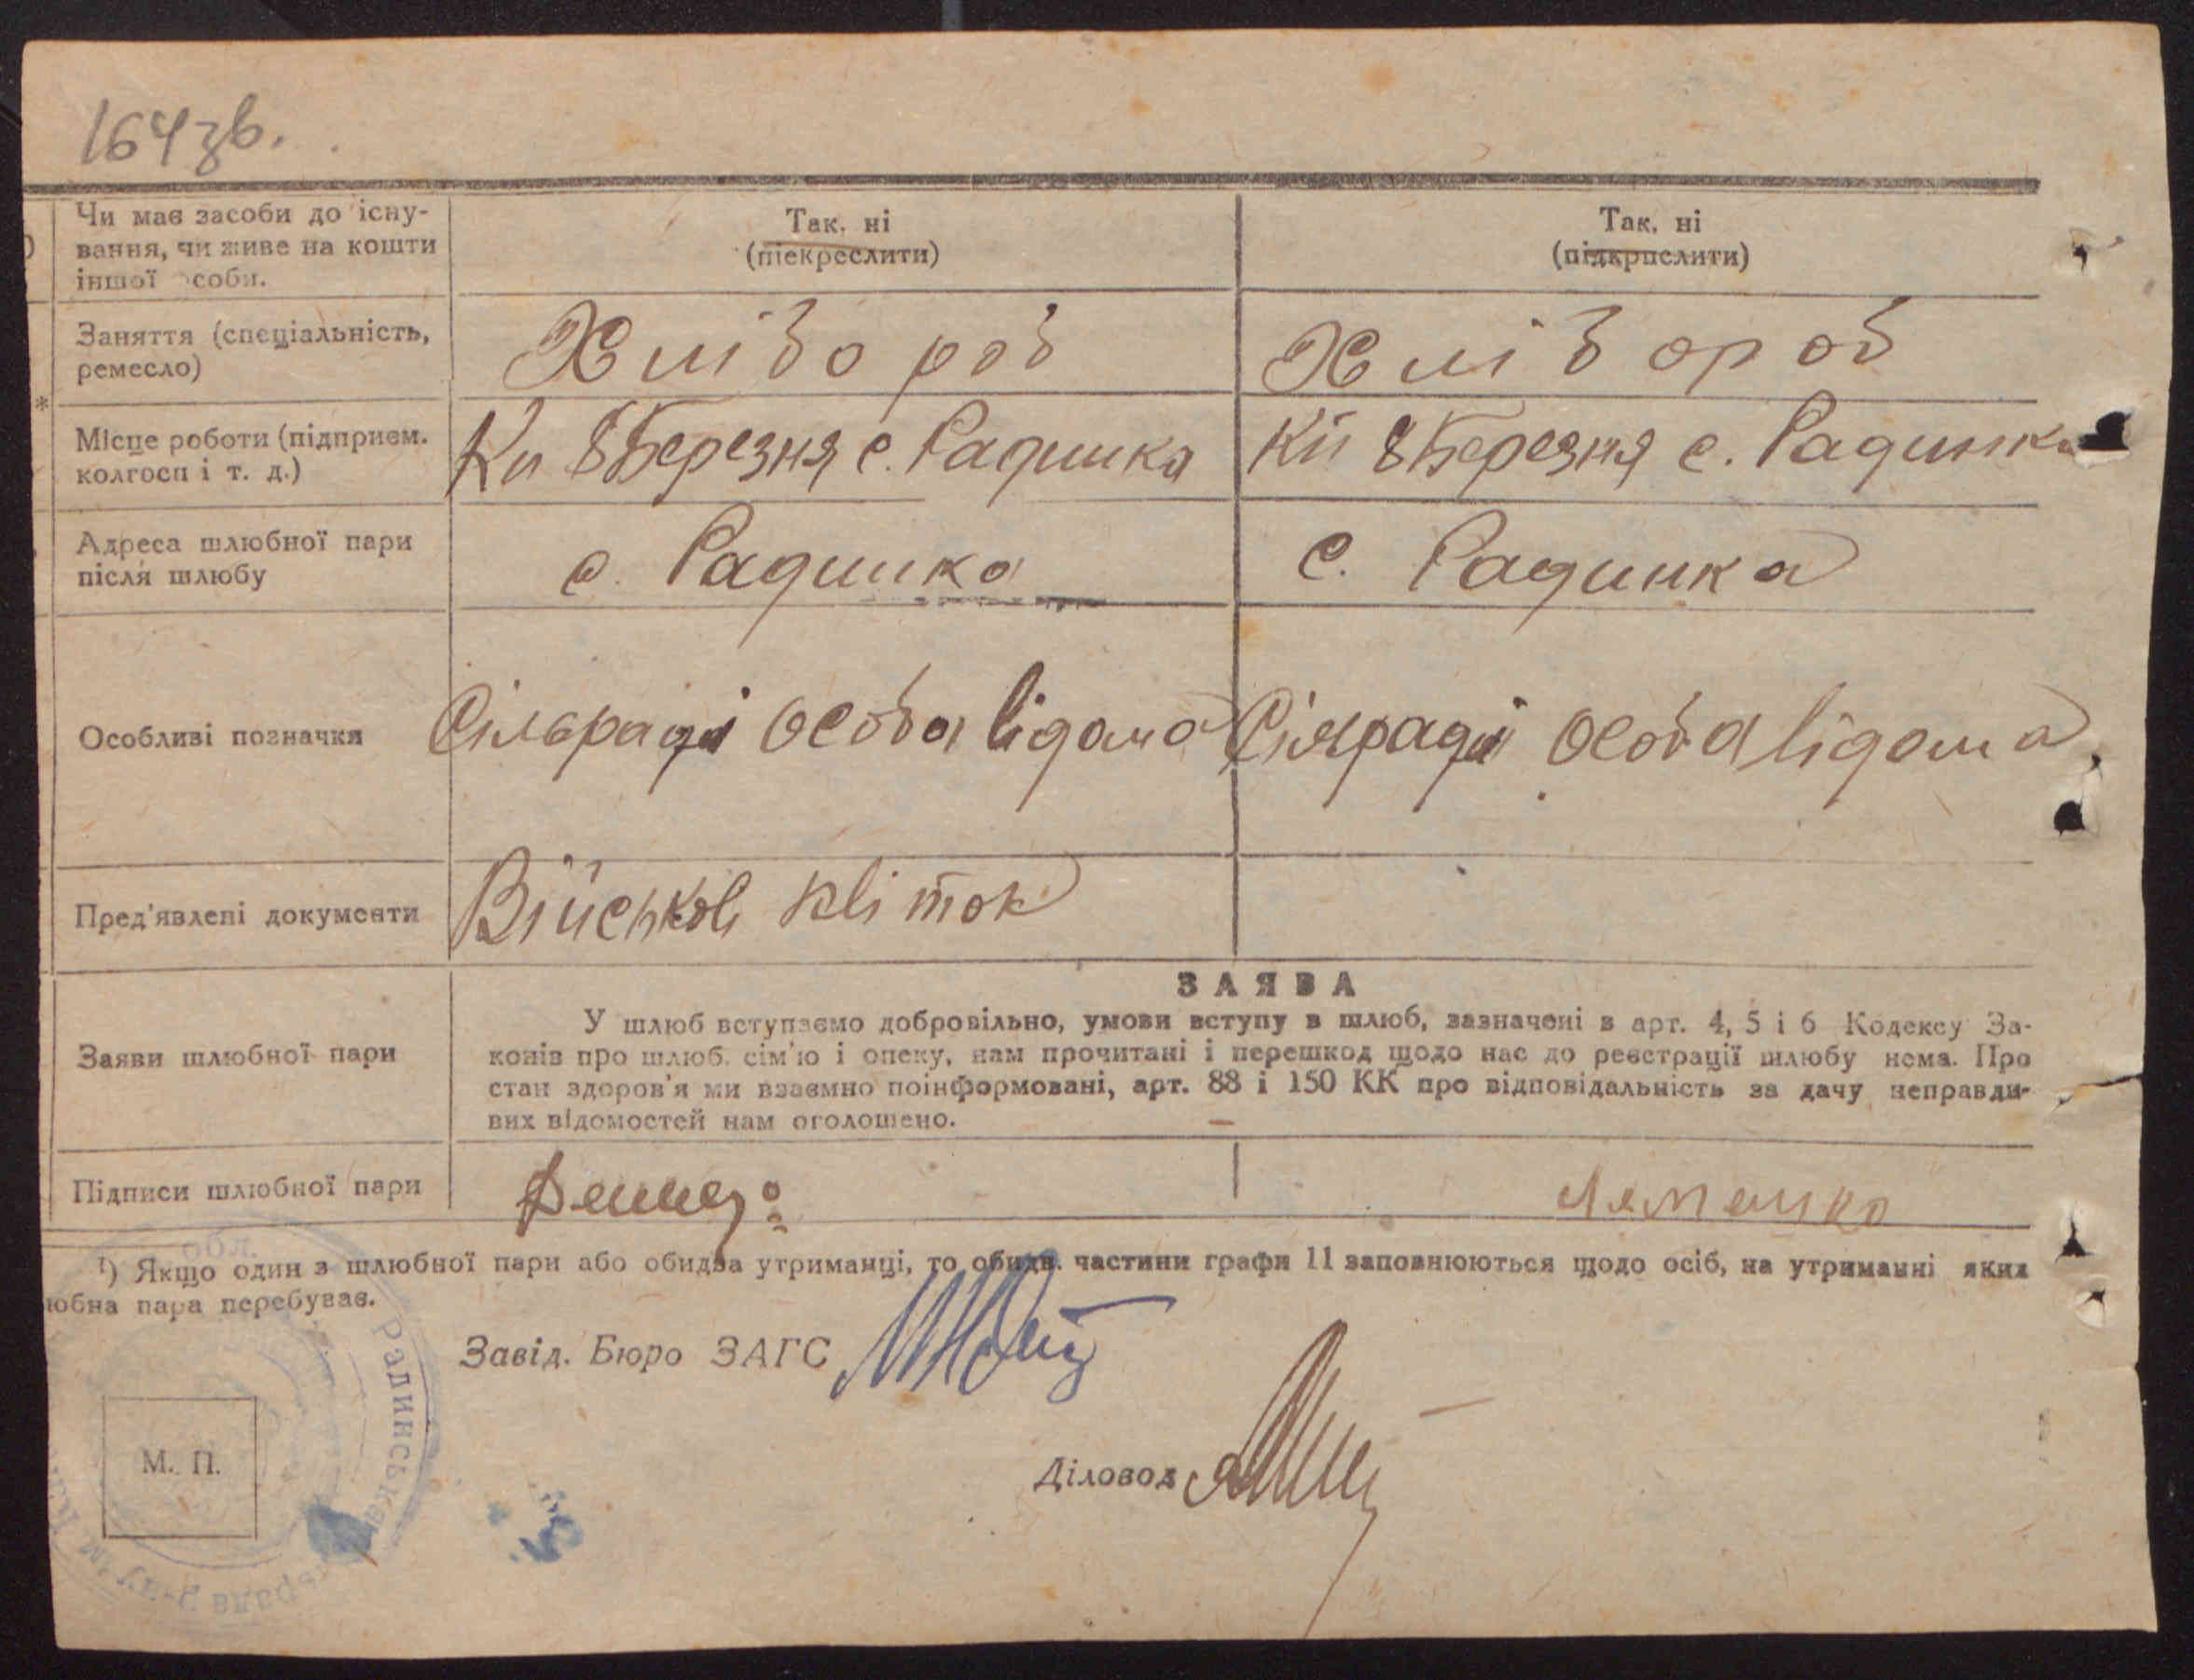 164 зв.
Чи має засоби до існу-
вання, чи живе на кошти
іншої особи.
Так, ні
(піекреслити)
Так, ні
(підкрпслити)
Заняття (спеціальність,
ремесло)
Хлібороб
Хлібороб
Місце роботи (підприєм.
колгосп і т. д.)
Кп 8 Березня с. Радинка
Кп 8 Березня с. Радинка
Адреса шлюбної пари
після шлюбу
с. Радинка
с. Радинка
Особливі позначки
Сільраді особа відома
Сілраді особа відома
Пред'явлені документи
Військов квіток
Заяви шлюбної пари
ЗАЯВА
У шлюб вступаємо добровільно, умови вступу в шлюб, зазначені в арт. 4, 5 і 6 Кодексу За-
конів про шлюб, сім'ю і опеку, нам прочитані і перешкод щодо нас до реєстрації шлюбу нема. Про
стан здоров'я ми взаємно поінформовані, арт. 88 і 150 КК про відповідальність за дачу неправди-
вих відомостей нам оголошено.
Підписи шлюбної пари
¹) Якщо один з шлюбної пари або обидва утриманці, то обидв. частини графи 11 заповнюються щодо осіб, на утриманні яких
юбна пара перебуває.
Завід. Бюро ЗАГС
Діловод
М. П.
обл. Радинська сільрада р-ну